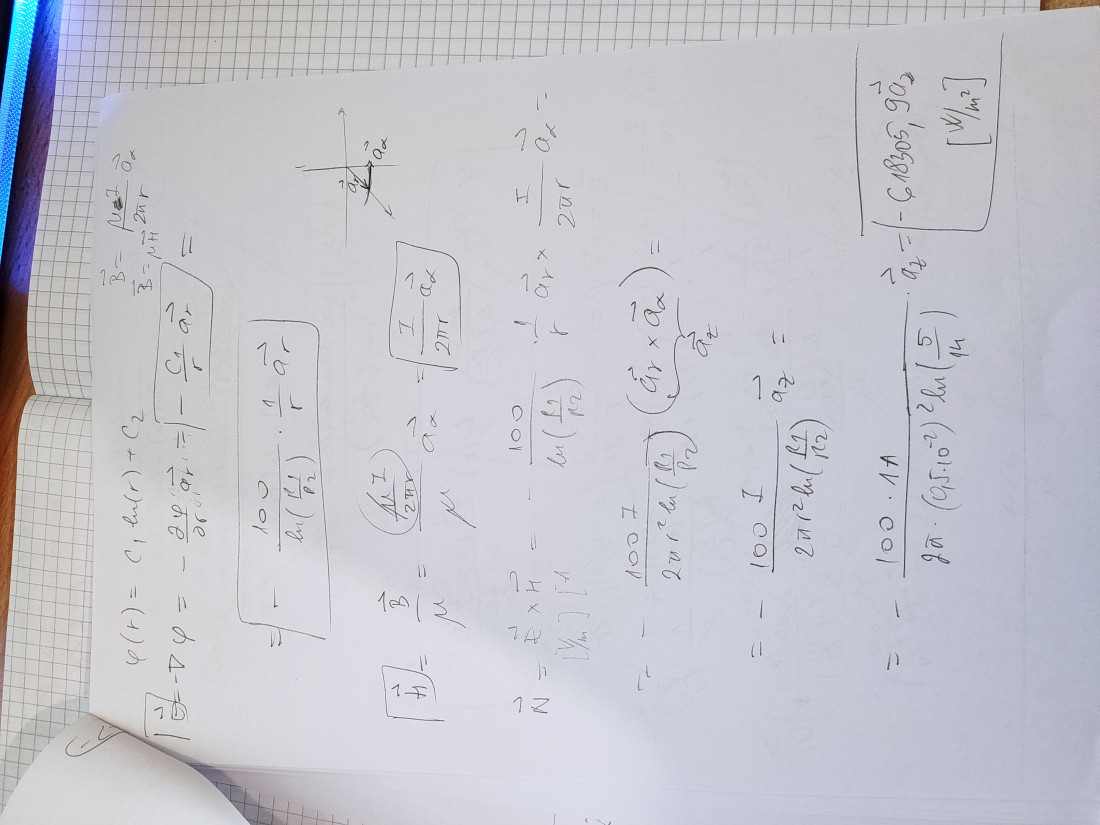 φ(r) = C₁ ln(r) + C₂
B⃗ = μI/2πr a⃗α
B⃗ = μH⃗
= -∇φ = -∂φ/∂r a⃗r = - C₁/r a⃗r =
= - 100/ln(R₁/R₂) · 1/r a⃗r
H⃗ = B⃗/μ = (μI/2πr)/μ a⃗α = I/2πr a⃗α
a⃗r a⃗α
N⃗ = E⃗ × H⃗ = - 100/ln(R₁/R₂) · 1/r a⃗r × I/2πr a⃗α =
[V/m] [A
= - 100 I/2πr² ln(R₁/R₂) (a⃗r × a⃗α) =
a⃗z
= - 100 I/2πr² ln(R₁/R₂) a⃗z =
= - 100 · 1A/2π · (0,5·10⁻²)² ln(5/14) · a⃗z = -618305,9 a⃗z
[W/m²]